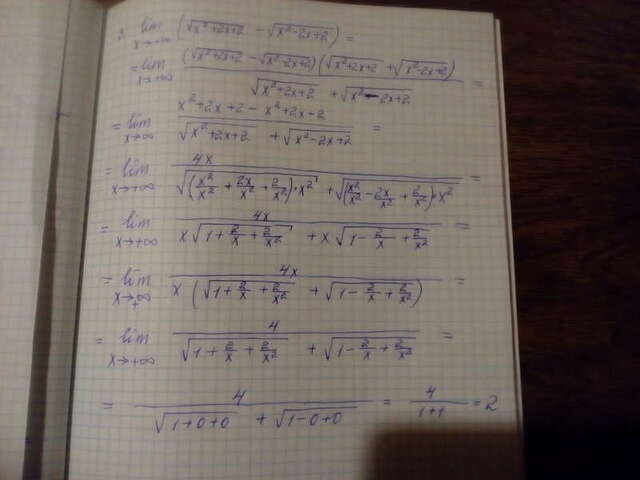 2. lim x→+∞ (√(x²+2x+2) - √(x²-2x+2)) =
= lim x→+∞ (√(x²+2x+2) - √(x²-2x+2))(√(x²+2x+2) + √(x²-2x+2)) / (√(x²+2x+2) + √(x²-2x+2)) =
= lim x→∞ (x²+2x+2 - x²+2x-2) / (√(x²+2x+2) + √(x²-2x+2)) =
= lim x→+∞ 4x / (√((x²/x² + 2x/x² + 2/x²)·x²) + √((x²/x² - 2x/x² + 2/x²)·x²)) =
= lim x→+∞ 4x / (x√(1 + 2/x + 2/x²) + x√(1 - 2/x + 2/x²)) =
= lim x→+∞ 4x / (x(√(1 + 2/x + 2/x²) + √(1 - 2/x + 2/x²))) =
= lim x→+∞ 4 / (√(1 + 2/x + 2/x²) + √(1 - 2/x + 2/x²)) =
= 4 / (√(1+0+0) + √(1-0+0)) = 4 / (1+1) = 2